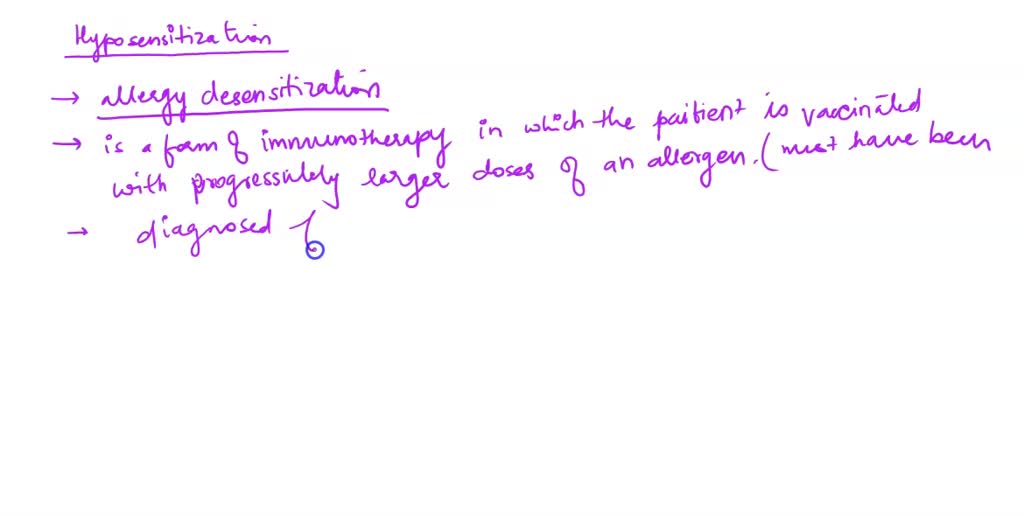 Hyposensitization
→ allergy desensitization
→ is a form of immunotherapy in which the paitient is vaccinated
with progressively larger doses of an allergen. (must have been
→ diagnosed